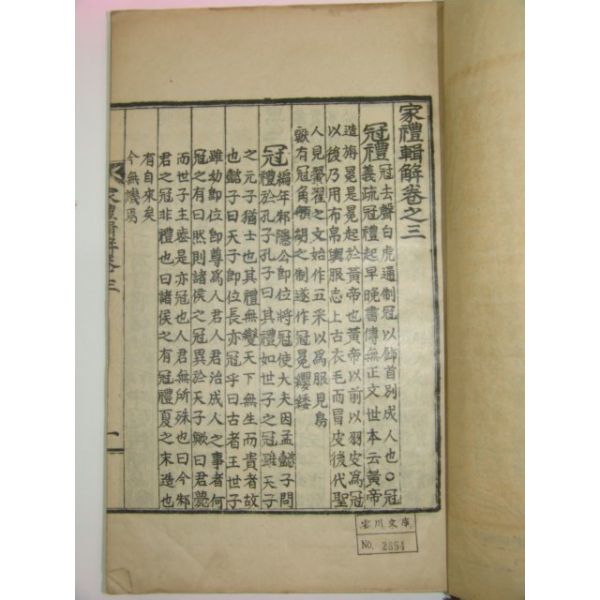 家禮輯解卷之三
冠禮冠去聲白虎通制冠以飾首別成人也○冠
義疏冠禮起早晚書傳無正文世本云黃帝
造旃冕是冕起於黃帝也黃帝以前以羽皮爲冠
以後乃用布帛輿服志上古衣毛而冒皮後代聖
人見翬翟之文始作五采以爲服見鳥
獸有冠角䫇胡之制遂作冠冕纓緌
冠編年邾隱公卽位將冠使大夫因孟懿子問
禮於孔子孔子曰其禮如世子之冠雖天子
之元子猶士也其禮無變天下無生而貴者故
也懿子曰天子卽位長亦冠乎曰古者王世子
雖幼卽位卽尊爲人君人君治成人之事者何
冠之有曰然則諸侯之冠異於天子歟曰君薨
而世子主喪是亦冠也人君無所殊也曰今邾
君之冠非禮也曰諸侯之有冠禮夏之末造也
有自來矣
今無譏焉
家禮輯解卷三
一
宏川文庫
No. 2854